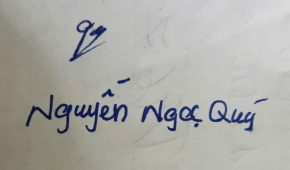 Nguyễn Ngọc Quý